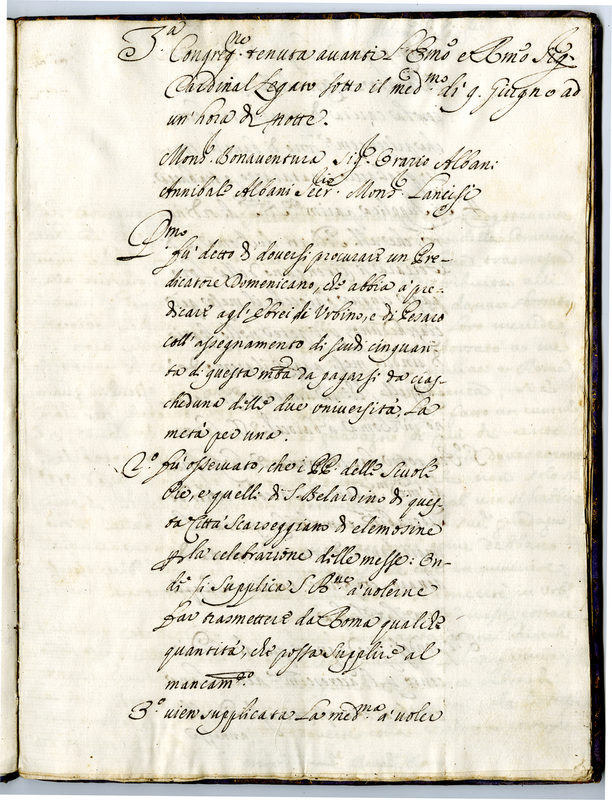 3.ª Congreg.ne tenuta avanti l'Emo e Rmo Sig.r
Cardinal Legato sotto il med.mo di 9. Giugno ad
un' hora di Notte.
Mons.r Bonaventura Sig.r Orazio Albani
Annibale Albani Secr.rio Mons.r Lancisi
P.mo
fù detto di doversi procurare un Pre-
dicatore Domenicano, che abbia à pre-
dicare agl' Ebrei di Urbino, e di Pesaro
coll' assegnamento di scudi cinquan-
ta di questa mta da pagarsi da cias-
cheduna delle due università, La
metà per una.
2.º fù osservato, che i PP. delle Scuole
Pie, e quelli di S. Belardino di ques-
ta Città scarseggiano di elemosine
p la celebrazione delle messe: On-
de si supplica S. B.ne à volerne
far trasmettere da Roma qualche
quantità, che possa supplire al
mancam.to
3.º vien supplicata La med.ma à voler